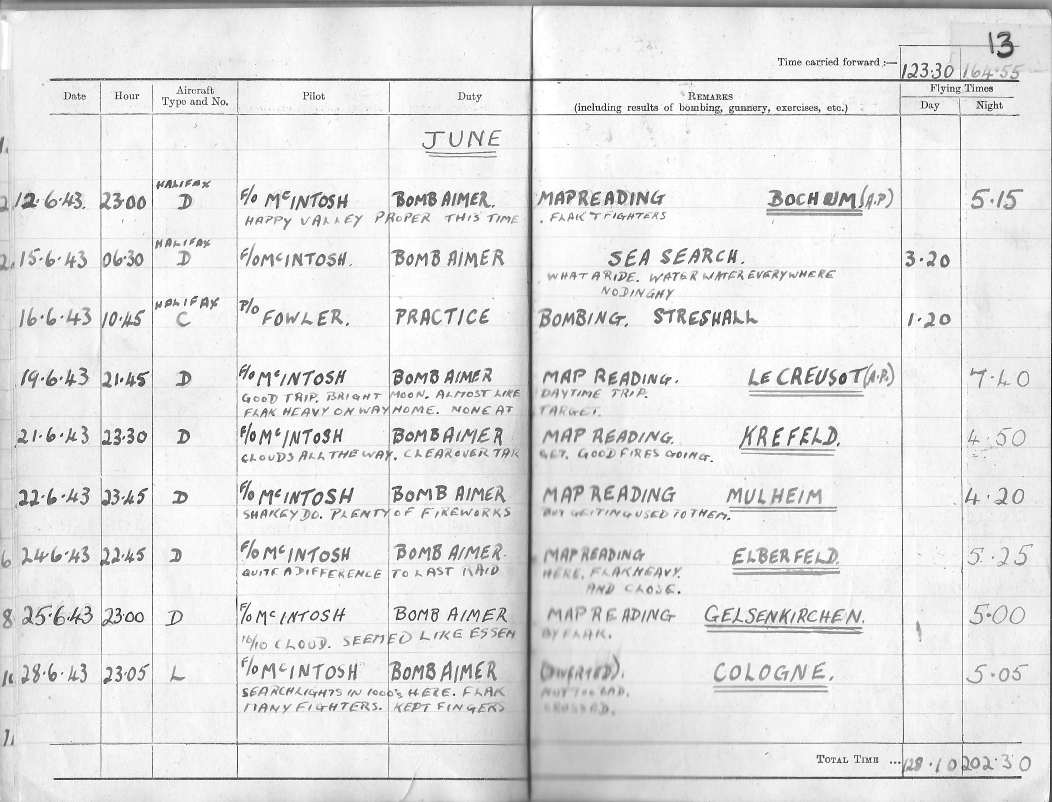 13
Time carried forward :— 123.30 164.55
Date Hour Aircraft Type and No. Pilot Duty REMARKS (including results of bombing, gunnery, exercises, etc.) Flying Times Day Night
JUNE
1.
2. 12.6.43. 23:00 HALIFAX D F/O McINTOSH BOMB AIMER. MAPREADING BOCHUM (A.P) 5.15
HAPPY VALLEY PROPER THIS TIME. FLAK + FIGHTERS
2. 15.6.43 06:30 HALIFAX D F/O McINTOSH. BOMB AIMER SEA SEARCH. 3.20
WHAT A RIDE. WATER WATER EVERYWHERE
NO DINGHY
16.6.43 10.45 HALIFAX C P/O FOWLER. PRACTICE BOMBING. STRESHALL 1.20
19.6.43 21.45 D F/O McINTOSH BOMB AIMER MAP READING. LE CREUSOT (A.P.) 7.40
GOOD TRIP. BRIGHT MOON. ALMOST LIKE DAYTIME TRIP.
FLAK HEAVY ON WAY HOME. NONE AT TARGET.
21.6.43 23:30 D F/O McINTOSH BOMB AIMER MAP READING. KREFELD. 4.50
CLOUDS ALL THE WAY. CLEAR OVER TAR GET. GOOD FIRES GOING.
22.6.43 23.45 D F/O McINTOSH BOMB AIMER MAP READING MULHEIM 4.20
SHAKEY DO. PLENTY OF FIREWORKS BUT GETTING USED TO THEM.
6 24.6.43 22.45 D F/O McINTOSH BOMB AIMER. MAP READING ELBERFELD. 5.25
QUITE A DIFFERENCE TO LAST RAID HERE. FLAK HEAVY.
AND CLOSE.
8 25.6.43 23:00 D F/O McINTOSH BOMB AIMER MAP READING GELSENKIRCHEN. 5.00
10/10 CLOUD. SEEMED LIKE ESSEN BY FLAK.
28.6.43 23.05 L F/O McINTOSH BOMB AIMER (DIVERTED). COLOGNE. 5.05
SEARCHLIGHTS IN 1000's HERE. FLAK NOT TOO BAD.
MANY FIGHTERS. KEPT FINGERS CROSSED.
TOTAL TIME ... 128.10 202.30